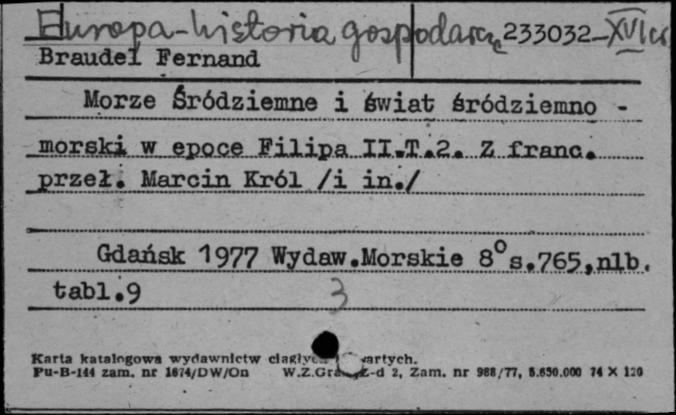 Europa-historia gospodarcz 233032-XVI
Braudel Fernand
Morze Śródziemne i świat śródziemno -
morski w epoce Filipa II.T.2. Z franc.
przeł. Marcin Król /i in./
Gdańsk 1977 Wydaw.Morskie 8° s.765,nlb.
tabl.9 3
Karta katalogowa wydawnictw
Pu-B-144 zam. nr 1674/DW/On W.Z.Graf. Z-d 2, Zam. nr 988/77, 5.650.000 74 X 120